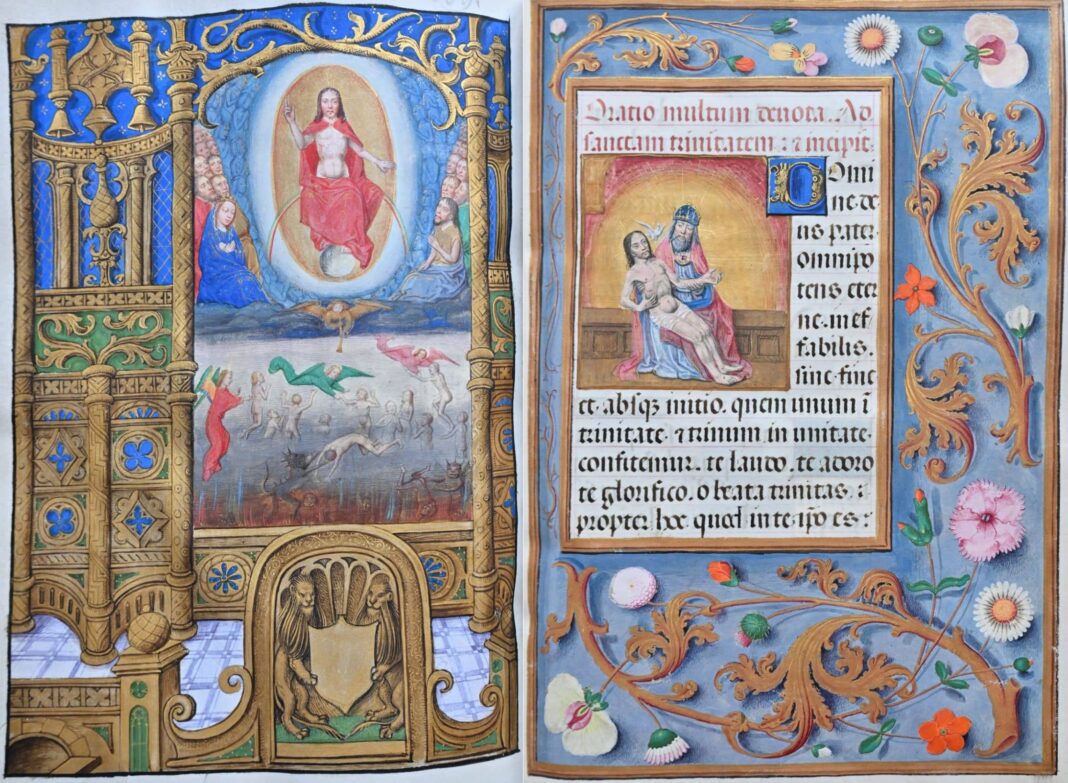 Oratio multum devota. Ad
sanctam trinitatem : & incipit.
Domi
ne. de
us pater
omnipo
tens eter
ne. inef
fabilis.
sine fine
et. absq3 initio. quem unum ī
trinitate. ⁊ trinum in unitate.
confitemur. te laudo. te adoro
te glorifico. o beata trinitas :
propter hec. quod in te ipo es :